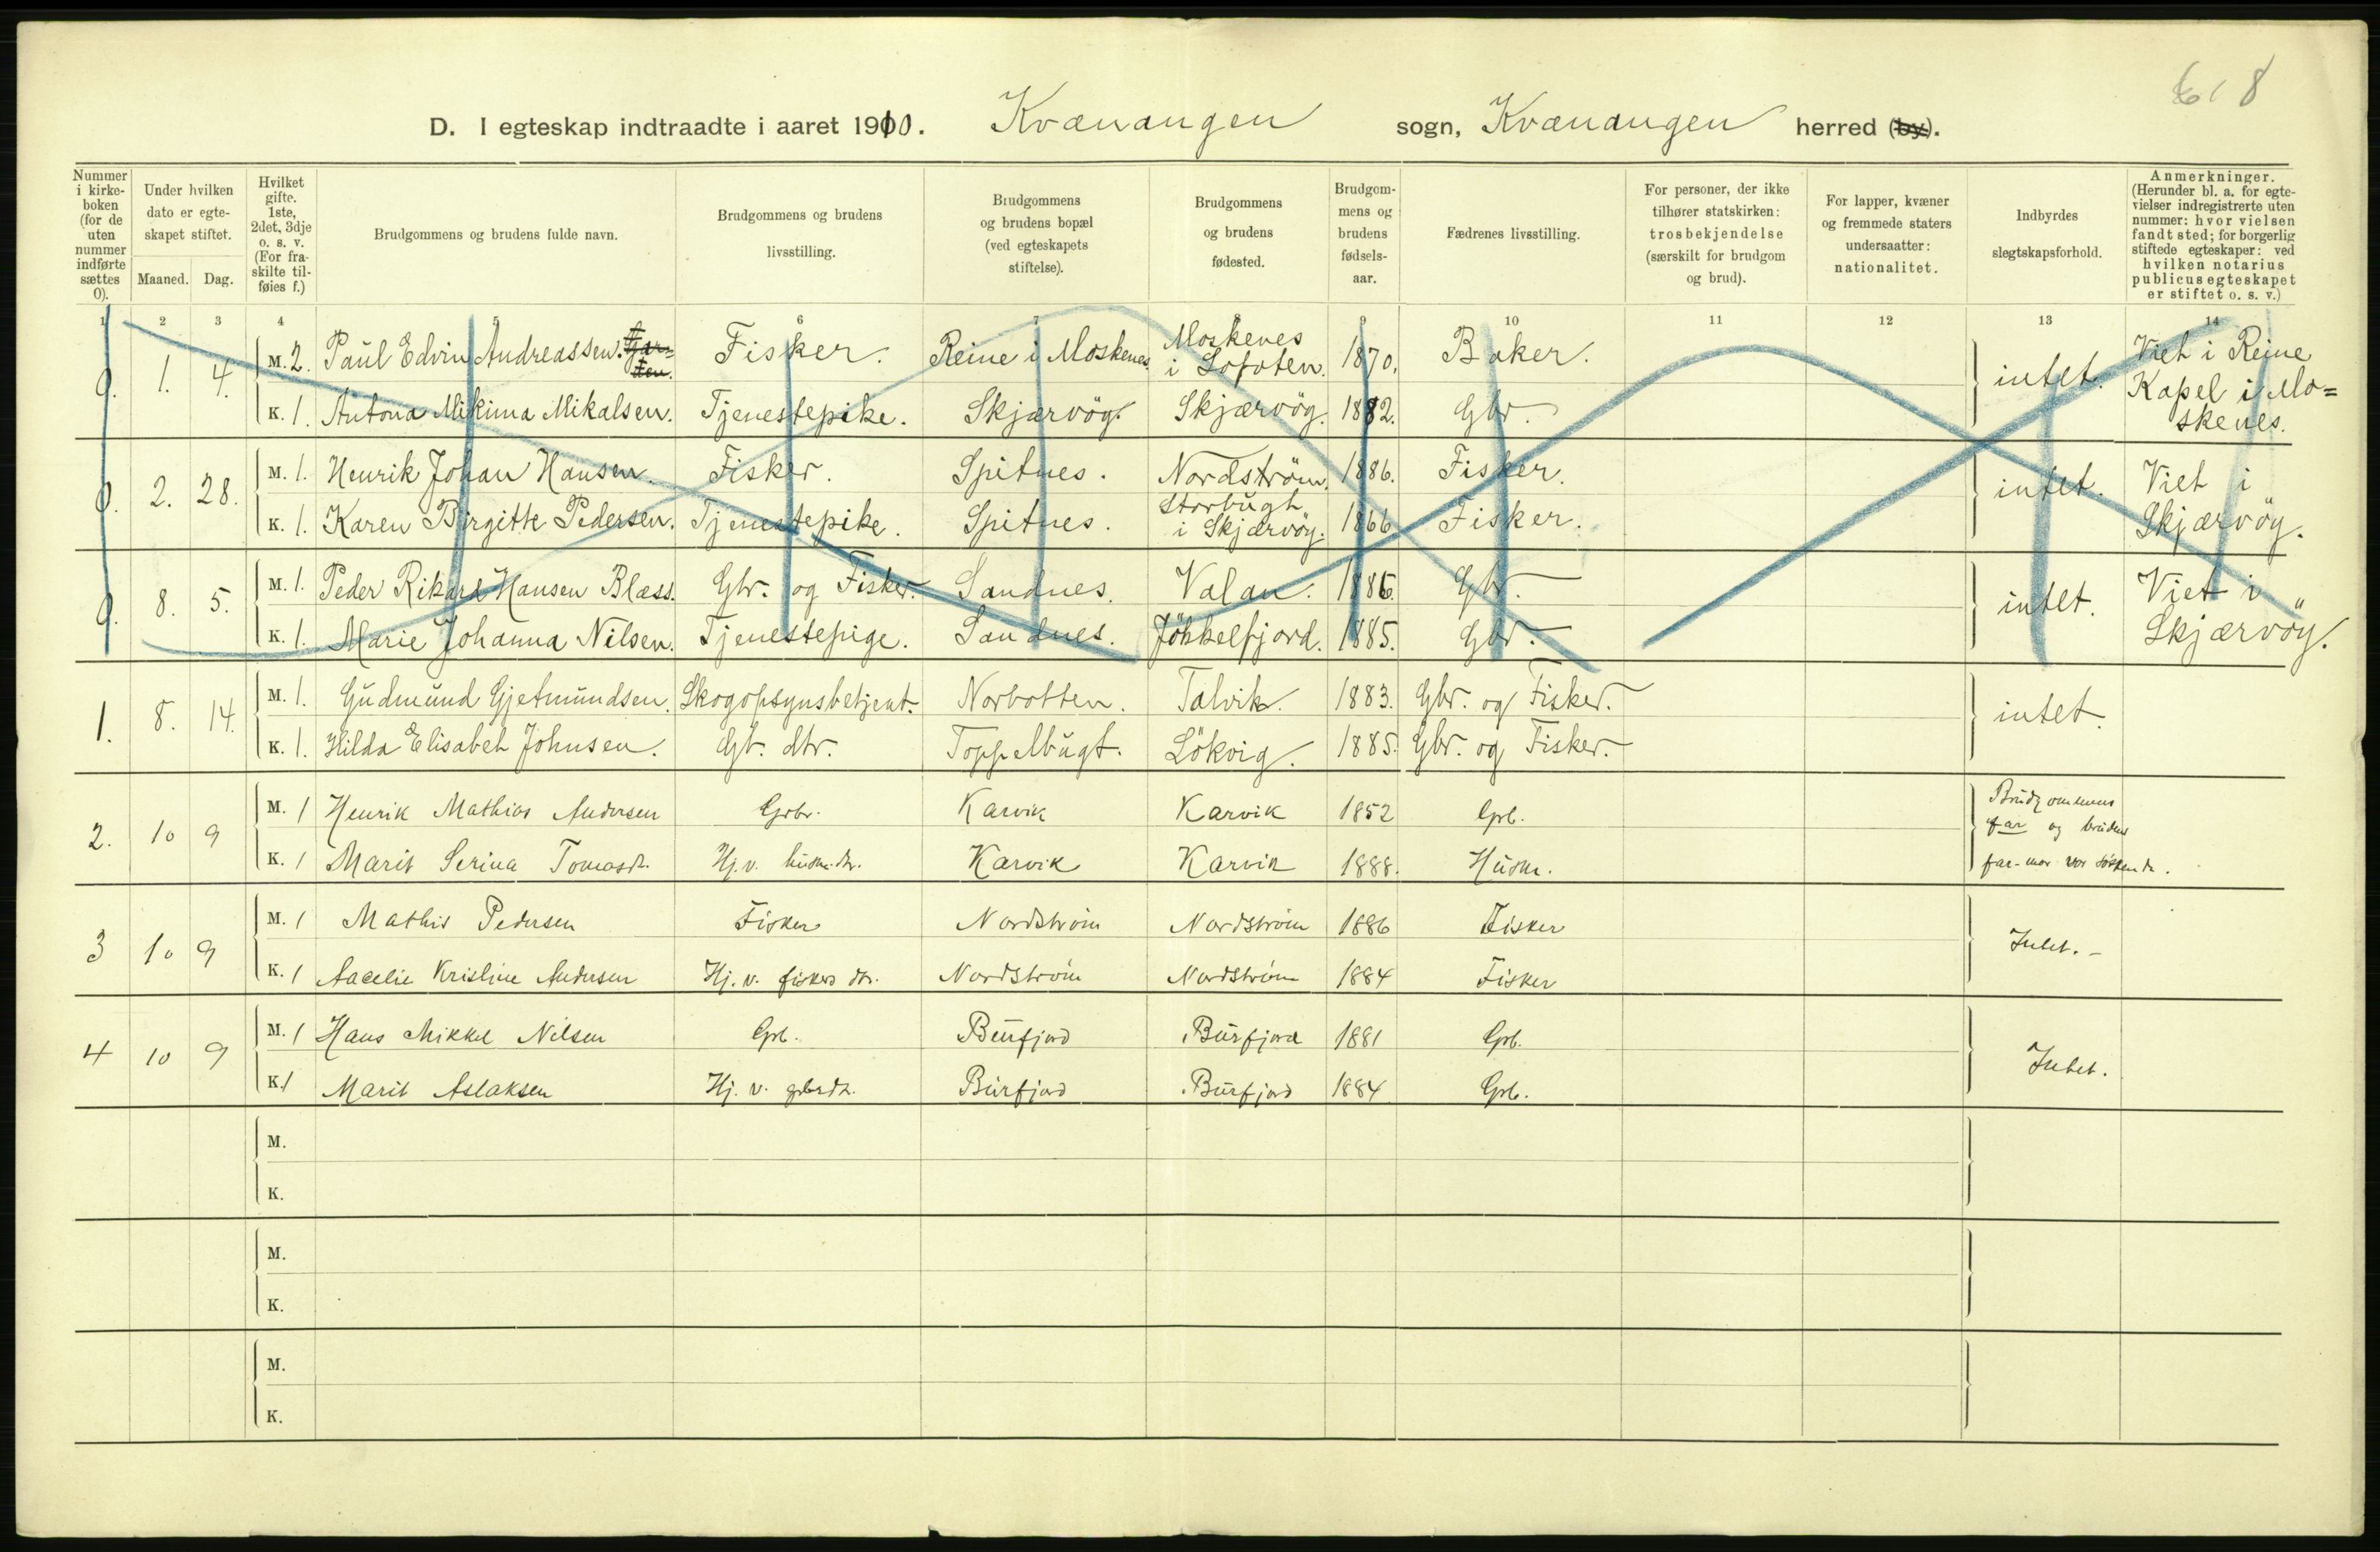 618
D. I egteskap indtraadte i aaret 1910. Kvænangen sogn, Kvænangen herred (by).
Nummer i kirkeboken (for de uten nummer indførte sættes 0).
Under hvilken dato er egteskapet stiftet.
Maaned. Dag.
Hvilket gifte. 1ste, 2det, 3dje o. s. v. (For fraskilte tilføies f.)
Brudgommens og brudens fulde navn.
Brudgommens og brudens livsstilling.
Brudgommens og brudens bopæl (ved egteskapets stiftelse).
Brudgommens og brudens fødested.
Brudgommens og brudens fødselsaar.
Fædrenes livsstilling.
For personer, der ikke tilhører statskirken: trosbekjendelse (særskilt for brudgom og brud).
For lapper, kvæner og fremmede staters undersaatter: nationalitet.
Indbyrdes slegtskapsforhold.
Anmerkninger. (Herunder bl. a. for egtevielser indregistrerte uten nummer: hvor vielsen fandt sted; for borgerlig stiftede egteskaper: ved hvilken notarius publicus egteskapet er stiftet o. s. v.)
1 2 3 4 5 6 7 8 9 10 11 12 13 14
0. 1. 4. M. 2. Paul Edvin Andreassen. Fisker. Reine i Moskenes. Moskenes i Lofoten. 1870. Baker. intet. Viet i Reine Kapel i Moskenes.
K. 1. Antona Mikima Mikalsen. Tjenestepike. Skjærvög. Skjærvög. 1882. Gbr.
0. 2. 28. M. 1. Henrik Johan Hansen. Fisker. Spitnes. Nordström. 1886. Fisker. intet. Viet i Skjærvög.
K. 1. Karen Birgitte Pedersen. Tjenestepike. Spitnes. Storbugt i Skjærvög. 1866 Fisker.
0. 8. 5. M. 1. Peder Rikard Hansen Blæss. Gbr. og Fisker. Sandnes. Valan. 1886. Gbr. intet. Viet i Skjærvög.
K. 1. Marie Johanna Nilsen. Tjenestepige. Sandnes. Jökkelfjord. 1885. Gbr.
1. 8. 14. M. 1. Gudmund Gjetmundsen. Skogopsynsbetjent. Norbotten. Talvik. 1883. Gbr. og Fisker. intet.
K. 1. Hilda Elisabet Johnsen. Gb. dtr. Toppelbugt. Lökvig. 1885. Gbr. og Fisker.
2. 10 9 M. 1 Henrik Mathias Andersen Grbr. Karvik Karvik 1852 Grb. Brudgommens far og brudens far-mor var söskende.
K. 1 Marit Serina Tomasdr. Hj. v. husm. dr. Karvik Karvik 1888. Husm.
3 10 9 M. 1 Mathis Pedersen Fisker Nordström Nordström 1886 Fisker Intet. -
K. 1 Kristine Andersen Hj. v. fiskers dtr. Nordström Nordström 1884 Fisker
4 10 9 M. 1 Hans Mikkel Nilsen Grb. Burfjord Burfjord 1881 Grb. Intet.
K. 1 Marit Aslaksen Hj. v. grbrdtr. Burfjord Burfjord 1884 Grb.
M.
K.
M.
K.
M.
K.